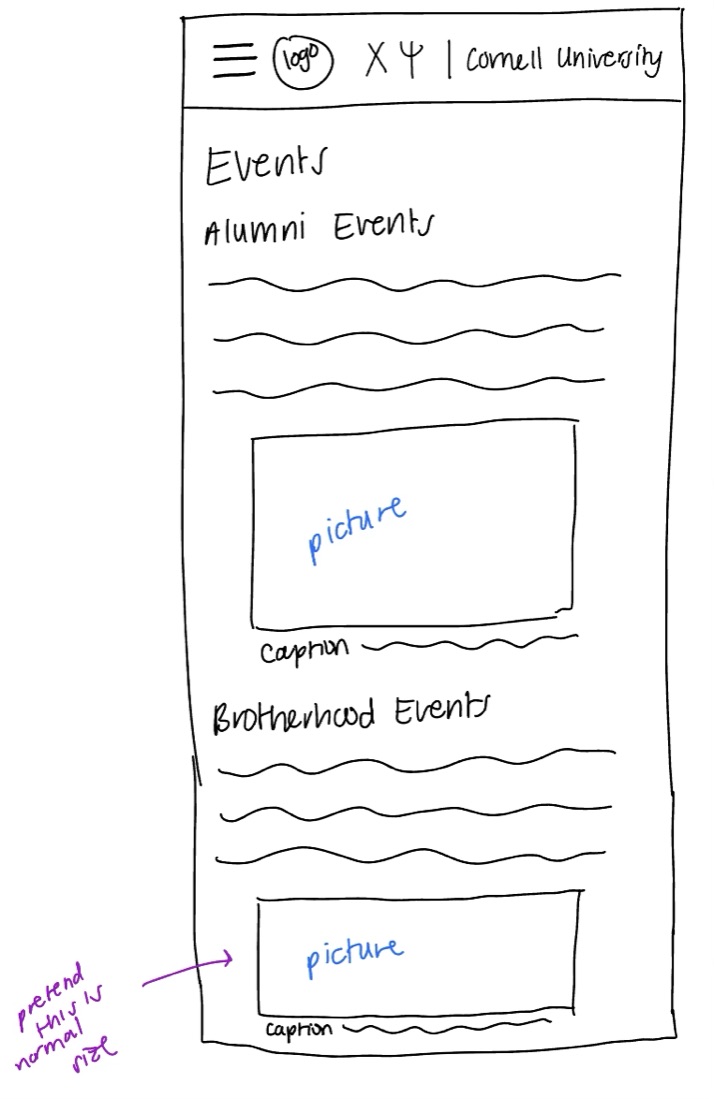 logo ΧΨ | Cornell University
Events
Alumni Events
picture
Caption
Brotherhood Events
picture
caption
pretend
this is
normal
size